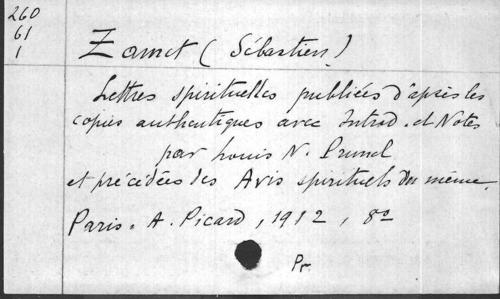 260
61
1
Zamet (Sébastien)
Lettres spirituelles publiées d'après les
copies authentiques avec Introd. et Notes
par Louis N. Prunel
et précédées des Avis spirituels du même.
Paris. A. Picard, 1912, 8o
Pr.